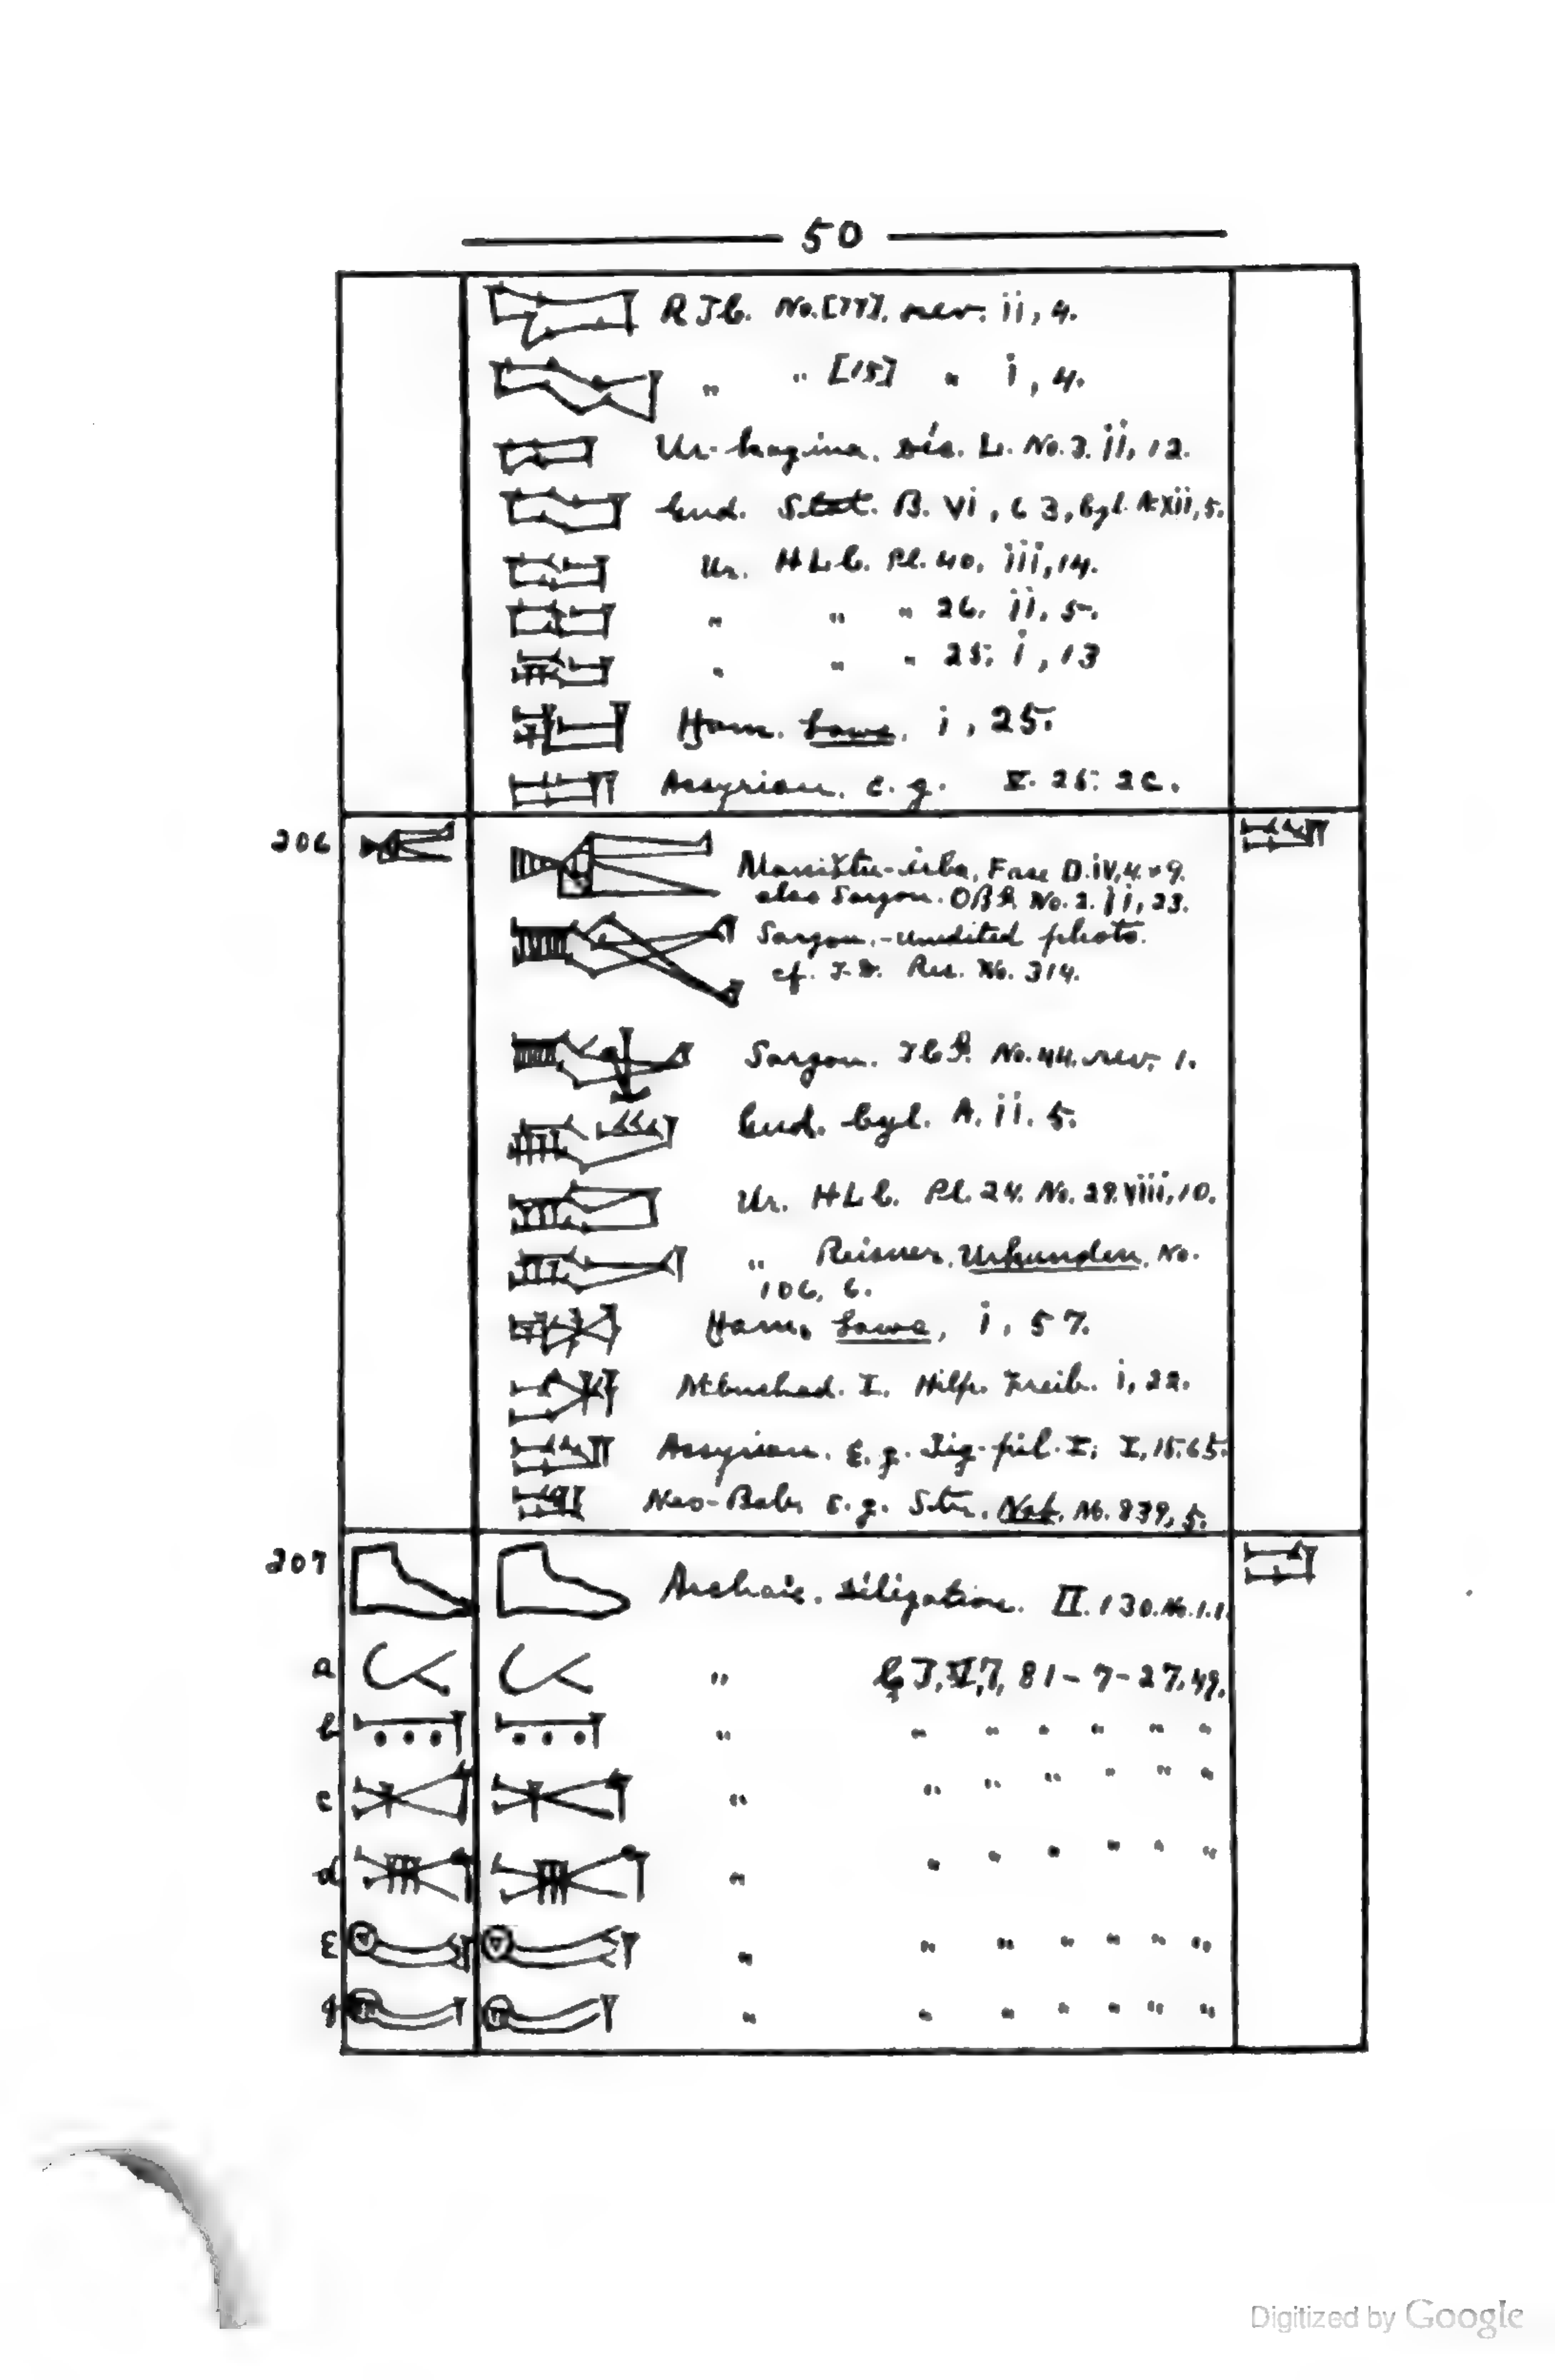 50
RTC. No. [77]. rev. ii, 4.
" " [15] " i, 4.
Ur-kagina. Déc. L. No. 3. ii, 12.
Gud. Stat. B. vi, 63, Cyl. A. xii, 5.
Ur. HLC. Pl. 40, iii, 14.
" " " 26. ii, 5.
" " " 25. i, 13
Ham. Laws, i, 25.
Assyrian. e. g. V. 25. 2c.
206 Maništu-irba, Face D. iv, 4. 9.
also Sargon. OBI. No. 2. ii, 23.
Sargon.-unedited photo.
cf. T-D. Rec. No. 314.
Sargon. No. 44. rev. 1.
Gud. Cyl. A. ii. 5.
Ur. HLC. Pl. 24. No. 28. viii, 10.
" Reisner, Urkunden, No.
106, 6.
Ham. Laws, i, 57.
I. Hilp. Freib. i, 22.
Assyrian. E.g. Tig-pil. I; I, 15. 65.
Neo-Bab. E.g. Str. Nab. No. 839, 5.
207 Archaic. Délégation. II. 130. No. 1.1.
a " CT, V, 7, 81-7-27, 49.
b " " " " " " "
c " " " " " " "
d " " " " " " "
e " " " " " " "
f " " " " " " "
Digitized by Google